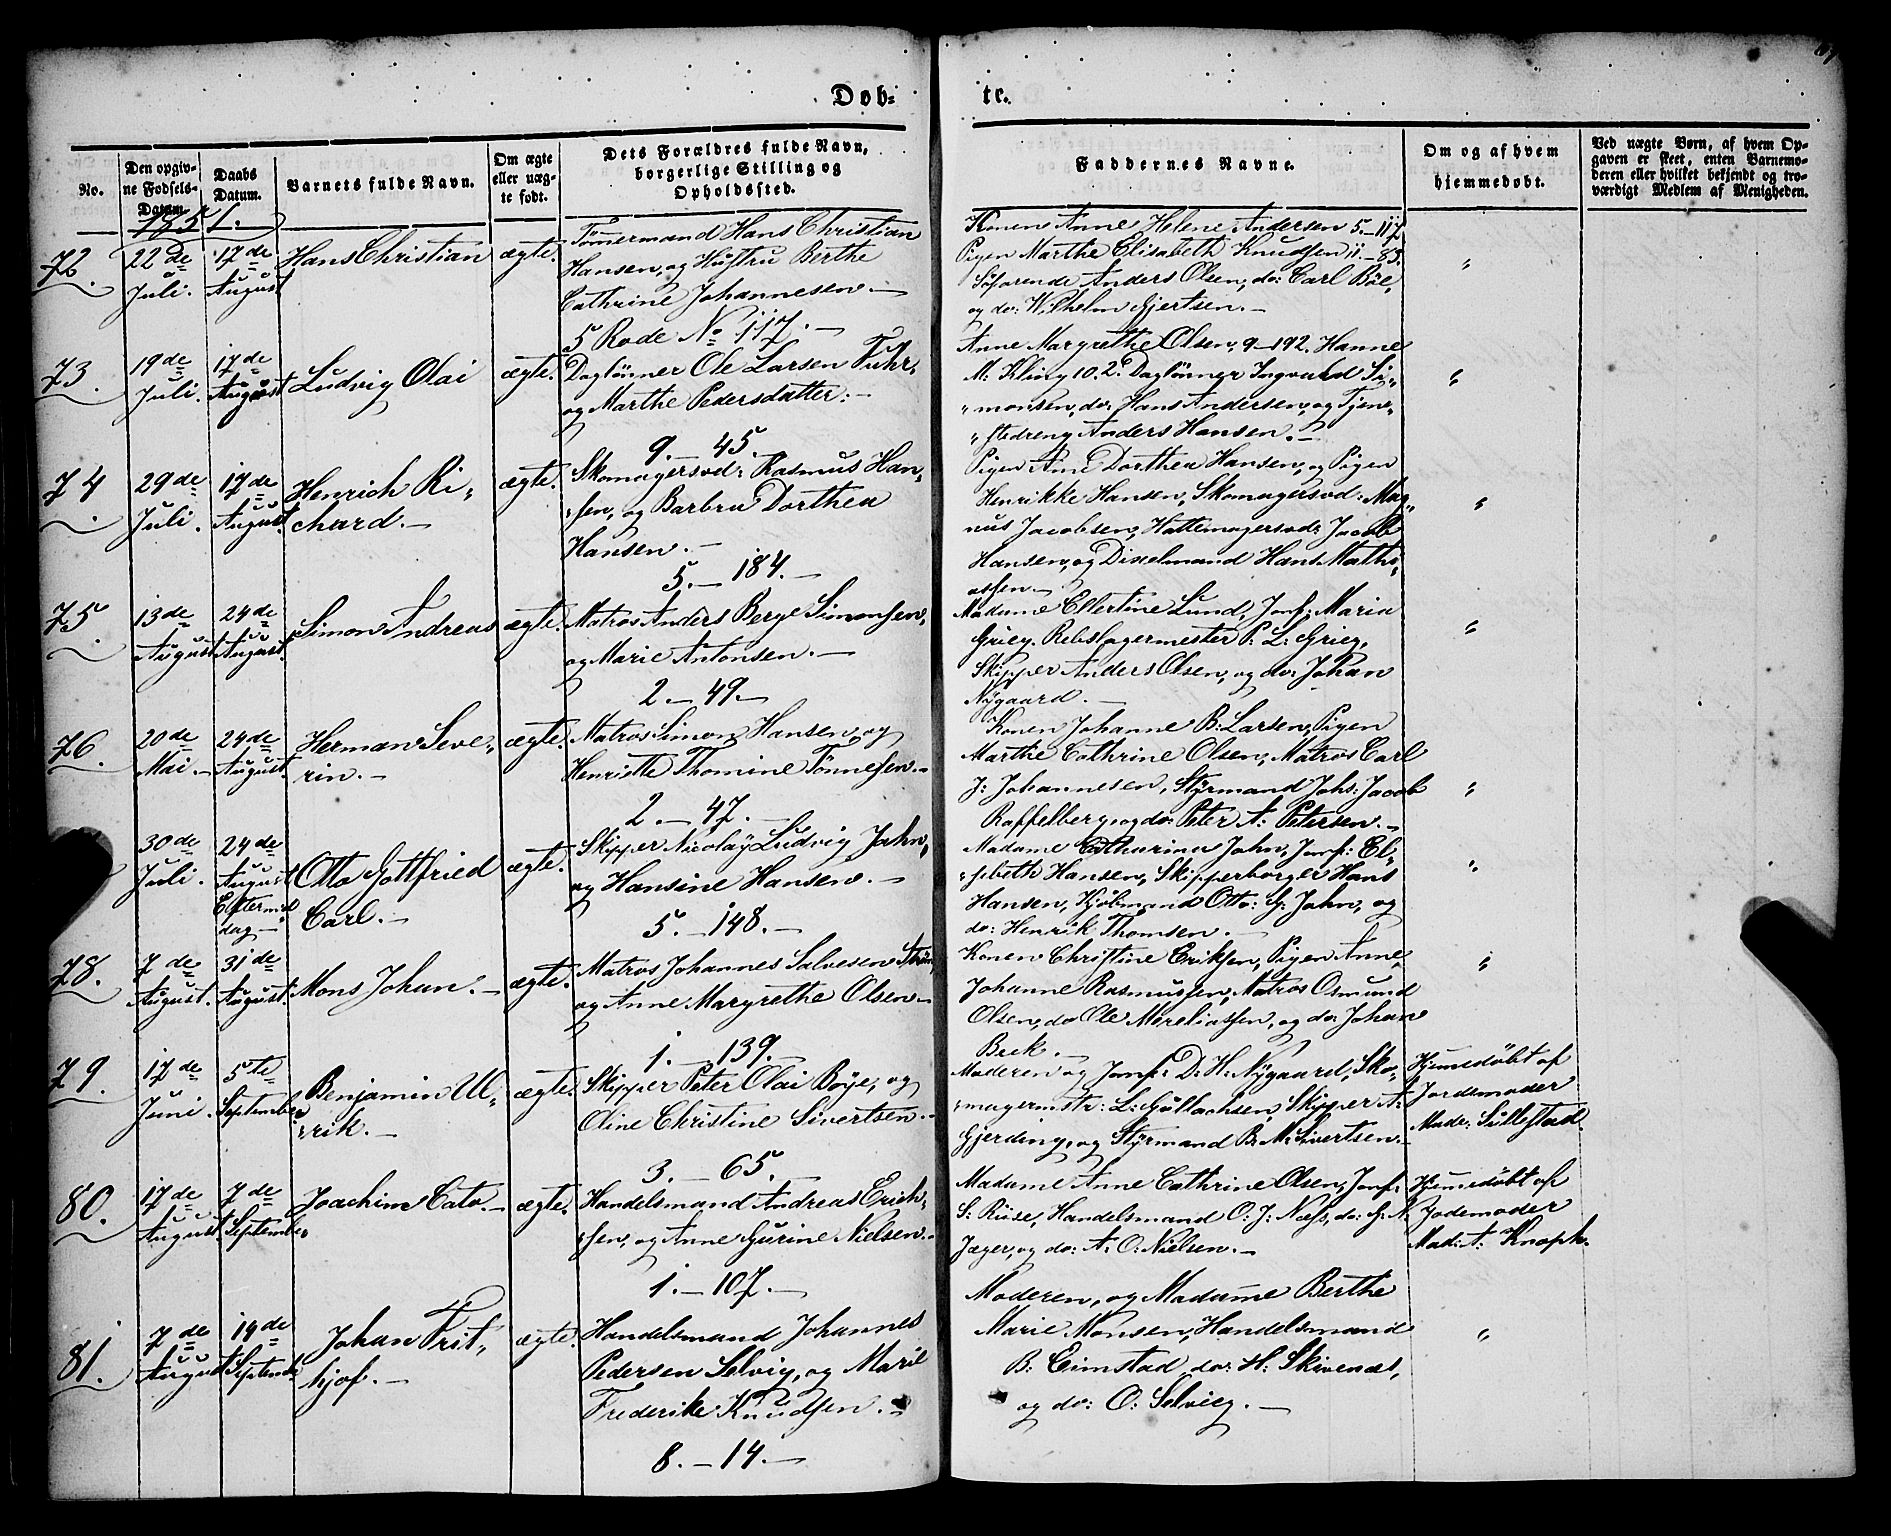 Døb-
te.
No.
Den opgiv-
ne Fødsels-
Datum.
Daabs
Datum.
Barnets fulde Navn.
Om ægte
eller uæg-
te født.
Dets Forældres fulde Navn,
borgerlige Stilling og
Opholdssted.
Faddernes Navne.
Om og af hvem
hjemmedøbt.
Ved uægte Børn, af hvem Op-
gaven er skeet, enten Barnemo-
deren eller hvilket bekjendt og tro-
værdigt Medlem af Menigheden.
1851.
72.
22de
Juli.
17de
August
Hans Christian
ægte.
Tømmermand Hans Christian
Hansen, og Hustru Berthe
Cathrine Johannesen.—
5 Rode No 117.—
Konen Anne Helene Andersen 5.–117,
Pigen Marthe Elisabeth Knudsen 11.–83.
Søfarende Anders Olsen, do: Carl Böe,
og do: Wilhelm Gjertsen.—
"
73.
19de
Juli.
17de
August
Ludvig Olai
ægte.
Daglønner Ole Larsen Fuhr,
og Marthe Pedersdatter.—
9.—45.
Anne Margrethe Olsen, 9–192. Hanne
M: Kling 10.2. Daglønner Ingvald Si-
"monsen, do: Hans Andersen, og Tjene-
"stedreng Anders Hansen.—
"
74.
29de
Juli.
17de
August
Henrich Ri-
chard.—
ægte.
Skomagersvd: Rasmus Han-
"sen, og Barbra Dorthea
Hansen.—
5.—184.—
Pigen Anne Dorthea Hansen, og Pigen
Henrikke Hansen, Skomagersvd: Mag-
nus Jacobsen, Hattemagersvd: Jacob
Hansen, og Dixelmand Hans Mathi-
assen.—
"
75.
13de
August
24de
August.
Simon Andreas
ægte.
Matros Anders Berge Simonsen,
og Marie Antonsen.—
2.—49.—
Madame Ellertine Lund, Jomf: Maria
Grieg, Rebslagermester P: L: Grieg,
Skipper Anders Olsen, og do: Johan
Nygaard.—
"
76.
20de
Mai.—
24de
August.
Herman Seve-
rin.—
ægte.
Matros Simon Hansen, og
Henriette Thomine Tønnesen.—
2.—47.—
Konen Johanne B: Larsen, Pigen
Marthe Cathrine Olsen, Matros Carl
J: Johannesen, Styrmand Johs: Jacob
Roffelberg, og do: Peter A: Petersen.—
"
30de
Juli.
24de
August
Eftermid-
dag.—
Otto Gottfried
Carl.—
ægte.
Skipper Nicolay Ludvig Jahn,
og Hansine Hansen.—
5.—148.—
Madame Catharina Jahn, Jomf: El-
"sebeth Hansen, Skipperborger Hans
Hansen, Kjøbmand Otto: G: Jahn, og
do: Henrik Thomsen.—
"
78.
7de
August.
31de
August.
Mons Johan.—
ægte.
Matros Johannes Salvesen
og Anne Margrethe Olsen.—
1.—139.—
Konen Christine Eriksen, Pigen Anne
Johanne Rasmussen, Matros Osmund
Olsen, do Ole Mereliassen, og do: Johan
Beck.—
"
79.
17de
Juni.
5te
September
Benjamin Ul-
"rik.—
ægte.
Skipper Peter Olai Bøye, og
Oline Christine Sivertsen.—
3.—65.—
Moderen og Jomf: D: H: Nygaard, Sko-
"magermstr: L: Gullachsen, Skipper A:
Gjerding, og Styrmand B: M: Sivertsen.—
Hjemmedøbt af
Jordemoder
Made: Sullestad
80.
17de
August.
7de
September.
Joachim Cato.—
ægte.
Handelsmand Andreas Erich-
"sen, og Anne Gurine Nielsen.—
1.—107.—
Madame Anne Cathrine Olsen, Jomf:
S: Ruse, Handelsmand O: J: Næss, do: G: A:
Jæger, og do: A: O: Nielsen.—
Hjemmedøbt af
Jodemoder
Mad: A: Knoph.
81.
7de
August
14de
Septembr
Johan Frit-
hjof.—
ægte.
Handelsmand Johannes
Pedersen Selvig, og Marie
Frederike Knudsen.—
8.—14.—
Moderen, og Madame Berthe
Marie Monsen, Handelsmand
B: Eimstad, do: H: Skivenæs,
og do: O: Selvieg.—
"